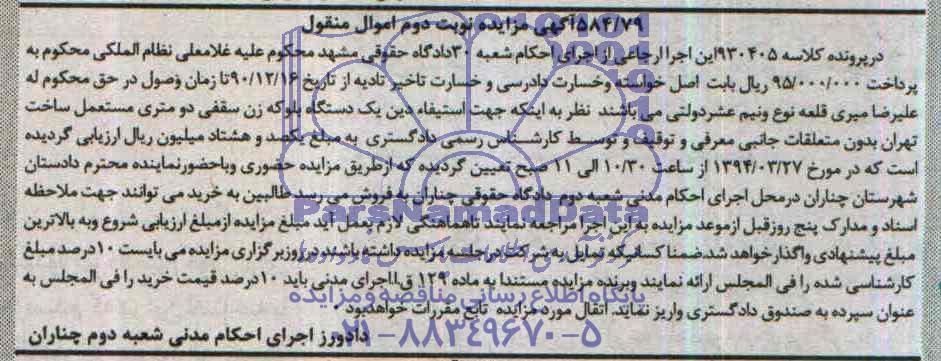 ۵۸۴/۷۹آگهی مزایده نوبت دوم اموال منقول
درپرونده کلاسه ۹۳۰۴۰۵این اجرا ارجاعی از اجرای احکام شعبه ۳۰دادگاه حقوقی مشهد محکوم علیه غلامعلی نظام الملکی محکوم به
پرداخت ۹۵/۰۰۰/۰۰۰ ریال بابت اصل خواسته وخسارت دادرسی و خسارت تاخیر تادیه از تاریخ ۹۰/۱۲/۱۶تا زمان وصول در حق محکوم له
علیرضا میری قلعه نوع ونیم عشردولتی می باشند نظر به اینکه جهت استیفاء دین یک دستگاه بلوکه زن سقفی دو متری مستعمل ساخت
تهران بدون متعلقات جانبی معرفی و توقیف و توسط کارشناس رسمی دادگستری به مبلغ یکصد و هشتاد میلیون ریال ارزیابی گردیده
است که در مورخ ۱۳۹۴/۰۳/۲۷ از ساعت ۱۰/۳۰ الی ۱۱ صبح تعیین گردیده که ازطریق مزایده حضوری وباحضورنماینده محترم دادستان
شهرستان چناران درمحل اجرای احکام مدنی شعبه دوم دادگاه حقوقی چناران به فروش می رسد طالبین به خرید می توانند جهت ملاحظه
اسناد و مدارک پنج روزقبل ازموعد مزایده به این اجرا مراجعه نمایند تاهماهنگی لازم بعمل آید مبلغ مزایده ازمبلغ ارزیابی شروع وبه بالاترین
مبلغ پیشنهادی واگذارخواهد شد.ضمنا کسانیکه تمایل به شرکت درجلسه مزایده داشته باشند درروزبرگزاری مزایده می بایست ۱۰درصد مبلغ
کارشناسی شده را فی المجلس ارائه نمایند وبرنده مزایده مستندا به ماده ۱۲۹ ق.ااجرای مدنی باید ۱۰درصد قیمت خرید را فی المجلس به
عنوان سپرده به صندوق دادگستری واریز نماید. انتقال مورد مزایده تابع مقررات خواهدبود
دادورز اجرای احکام مدنی شعبه دوم چناران
ParsNamadData
پایگاه اطلاع رسانی مناقصه و مزایده
۰۲۱-۸۸۳۴۹۶۷۰-۵